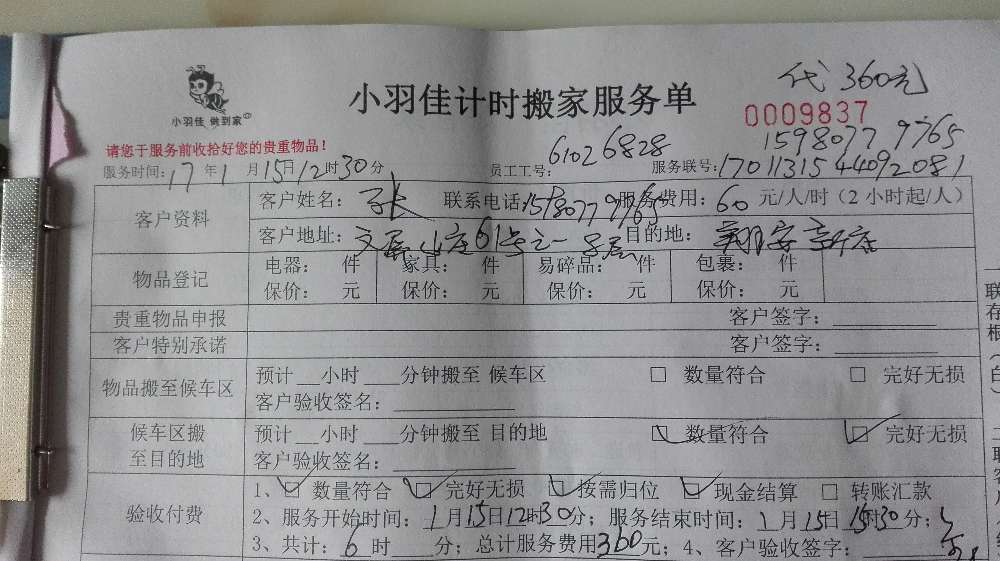 代 360元
小羽佳 做到家
小羽佳计时搬家服务单
0009837
请您于服务前收拾好您的贵重物品!
61026828
15980779765
服务时间:17年1月15日12时30分 员工工号: 服务联号:1701131544092081
客户资料 客户姓名:张 联系电话:15980779765 服务费用:60元/人/时(2小时起/人)
客户地址:文屏山庄61号之一 目的地:翔安新店
物品登记 电器: 件 家具: 件 易碎品: 件 包裹: 件
保价: 元 保价: 元 保价: 元 保价: 元
贵重物品申报 客户签字:
客户特别承诺 客户签字:
物品搬至候车区 预计__小时___分钟搬至 候车区 □ 数量符合 □ 完好无损
客户验收签名:
候车区搬至目的地 预计__小时___分钟搬至 目的地 ☑ 数量符合 ☑ 完好无损
客户验收签名:
验收付费 1、☑ 数量符合 ☑ 完好无损 ☑ 按需归位 ☑ 现金结算 □ 转账汇款
2、服务开始时间:1月15日12时30分;服务结束时间:1月15日15时30分;
3、共计:6时___分;总计服务费用360元;4、客户验收签字:
联
存
根
(
白